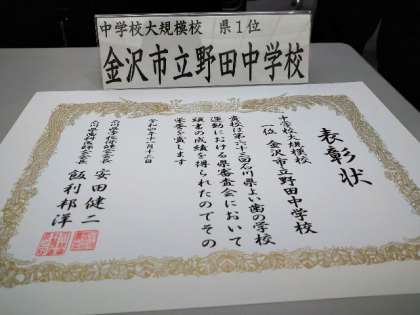 中学校大規模校 県1位
金沢市立野田中学校
表彰状
中学校大規模校
一位 金沢市立野田中学校
貴校は第六十三回石川県よい歯の学校
運動における県審査会において
頭書の成績を得られたのでその
栄誉を称します
令和四年十一月十三日
石川県学校保健会会長
安田健二
石川県歯科医師会会長
飯利邦洋